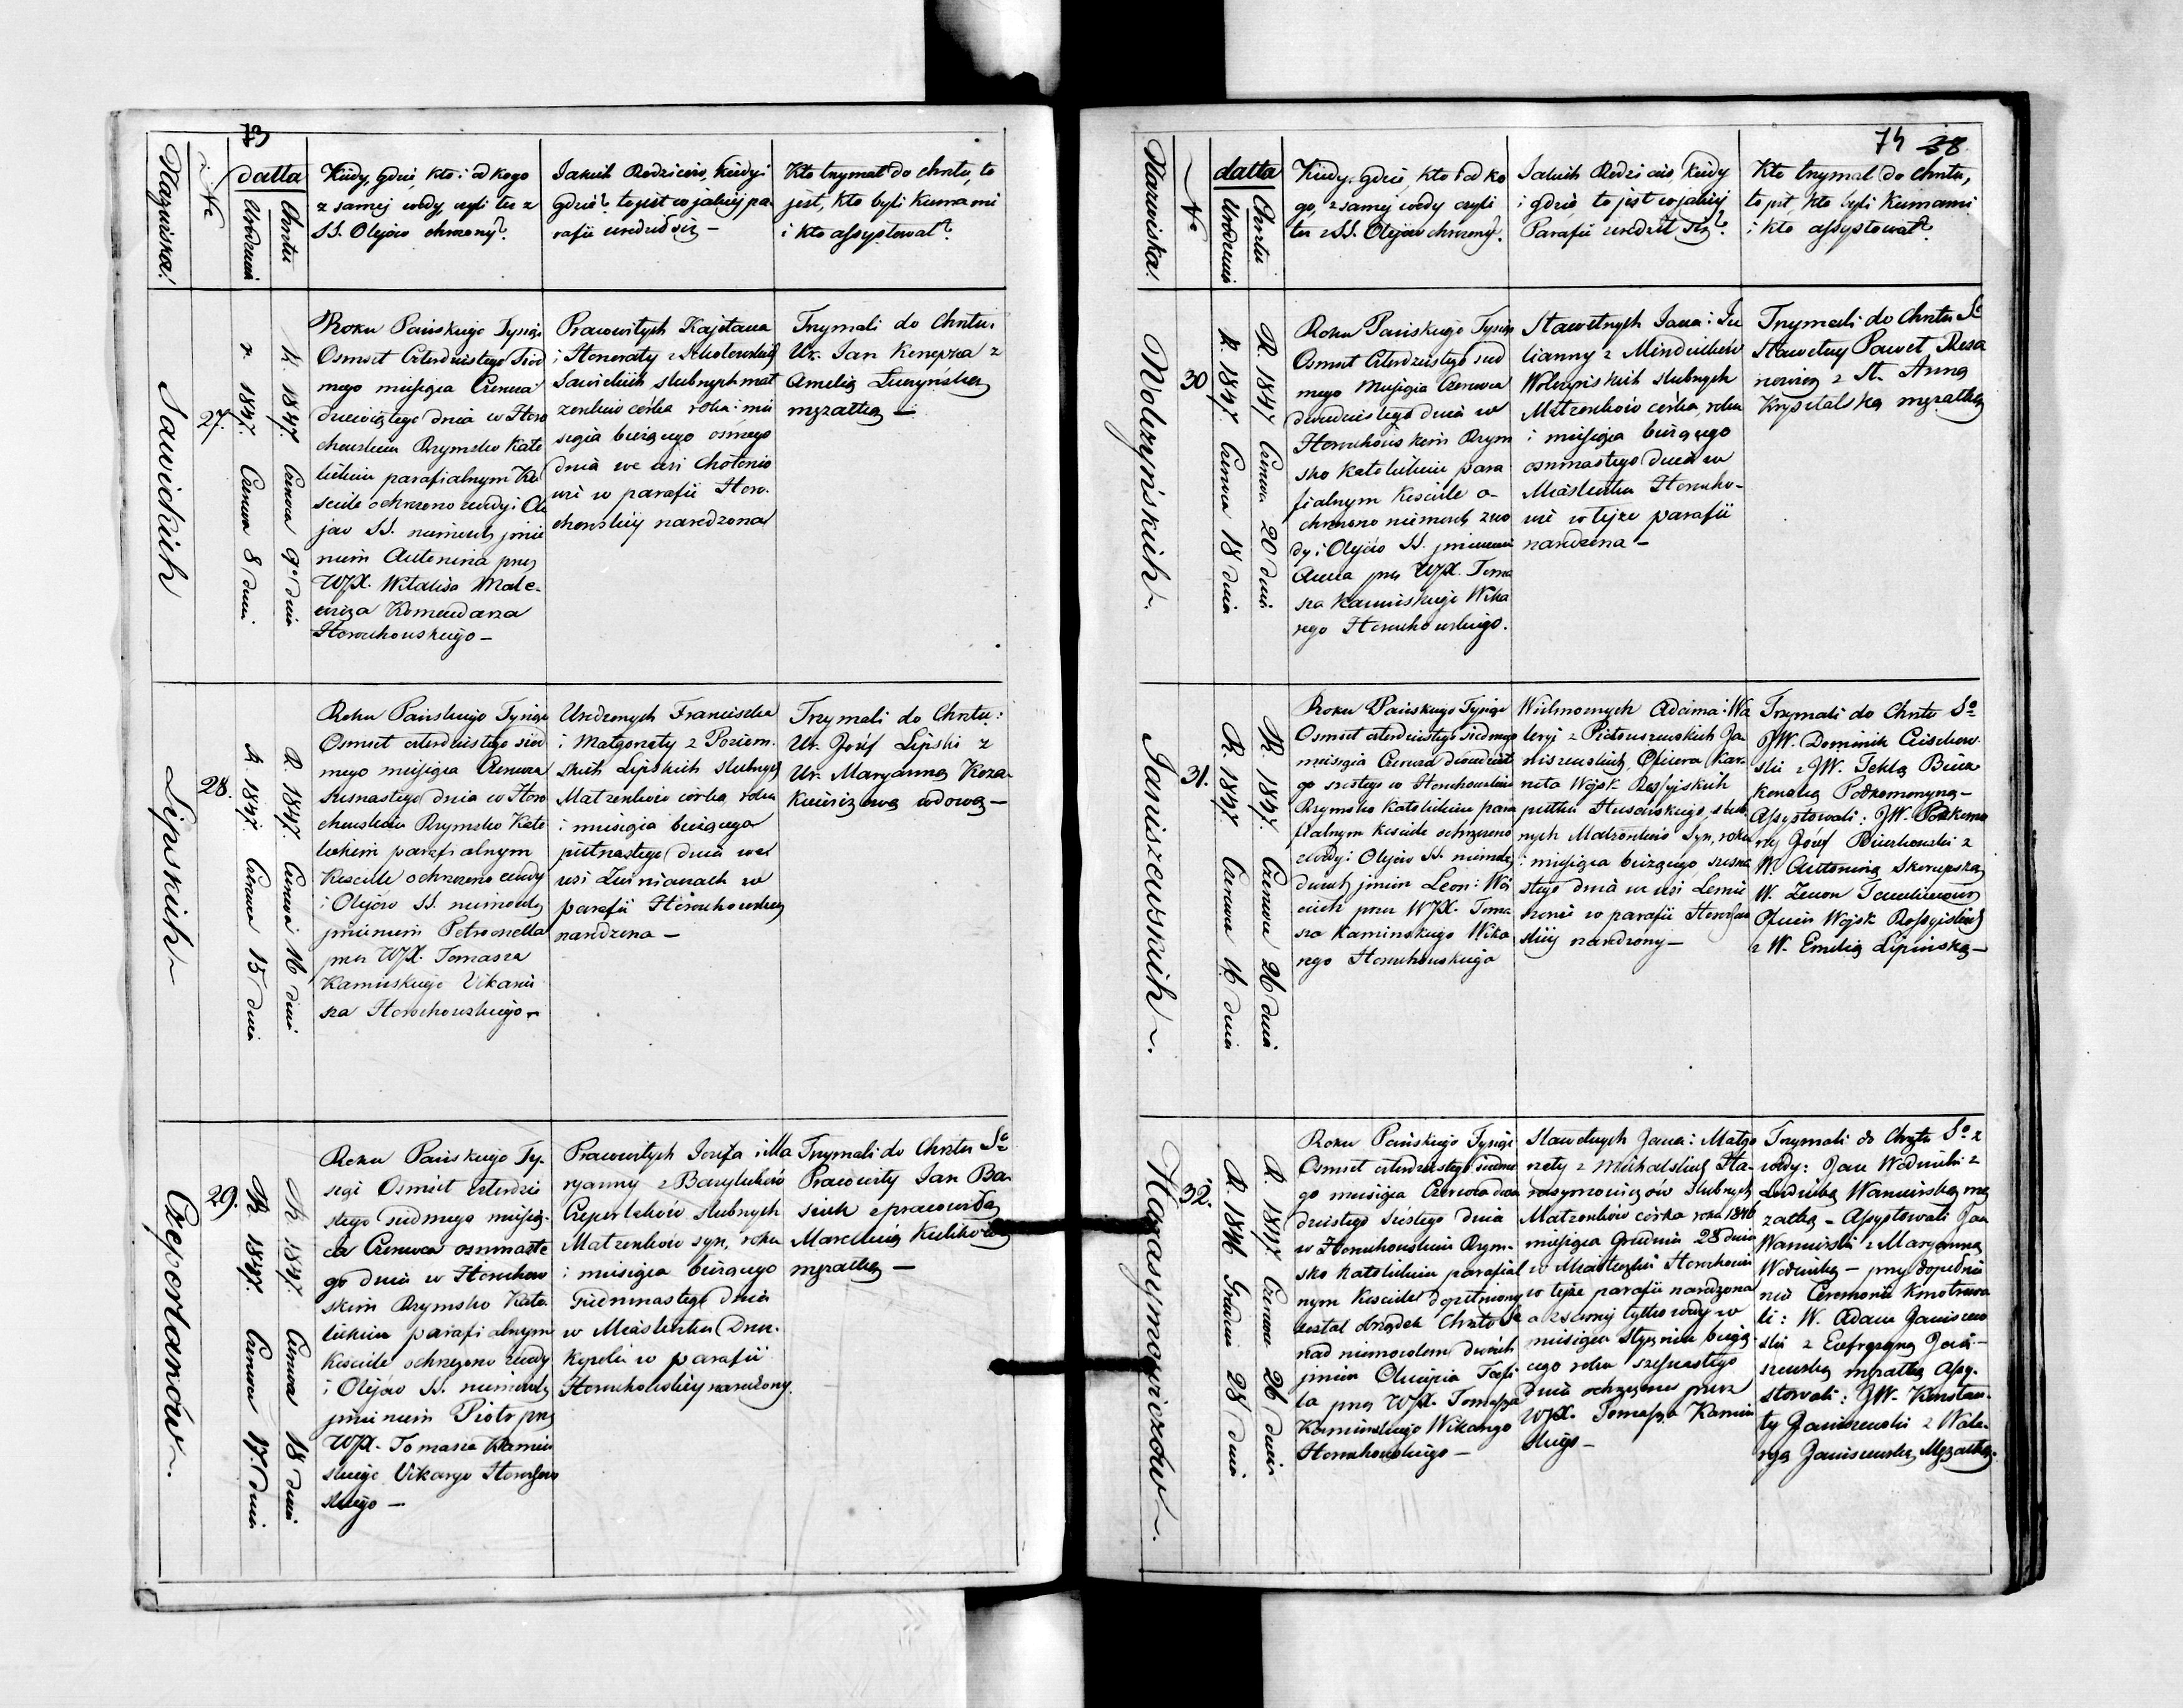 73
Nazwiska.
№
datta
Urodzenia
Chrztu
Kiedy, gdzie, kto i od kogo
z samej wody, czyli też z
SS. Olejów chrzczony?
Jakich Rodziców, kiedy i
gdzie? to jest w jakiej pa-
rafii urodził się –
Kto trzymał do chrztu, to
jest, kto byli Kumami
i kto assystował?
Sawickich
27.
r. 1847. Czerwca 8 dnia
R. 1847. Czerwca 9º dnia
Roku Pańskiego Tysiąc
Osmset Czterdziestego Siod
mego miesiąca Czerwca
dziewiątego dnia w Horo
chowskim Rzymsko Kato
lickim parafialnym Ko
sciele ochrzczono z wody i Ole
jów SS. niemowlę imie
niem Antonina przez
WJX. Witalisa Male-
wicza Komendarza
Horochowskiego –
Prawowitych Kajetana
i Honoraty z
Sawickich slubnych mał
żonków córka roku i mie
siąca bieżącego ósmego
dnia we wsi Chołonio
wie w parafii Horo-
chowskiej narodzona
Trzymali do Chrztu:
Ur. Jan Kenepza z
Amelią Luczyńską
mężatką –
Lipskich
28.
R. 1847. Czerwca 15 dnia
R. 1847. Czerwca 16 dnia
Roku Pańskiego Tysiąc
Osmset czterdziestego siod
mego miesiąca Czerwca
szesnastego dnia w Horo
chowskim Rzymsko Kato
lickim parafialnym
Kosciele ochrzczono z wody
i Olejów SS. niemowlę
imieniem Petronella
przez WJX. Tomasza
Kaminskiego Vikariu
sza Horochowskiego –
Urodzonych Franciszka
i Małgorzaty z Poziom-
skich Lipskich slubnych
Małżonków córka, roku
i miesiąca bieżącego
piętnastego dnia we
wsi Zwiniaczach w
parafii Horochowskiej
narodzona –
Trzymali do Chrztu:
Ur. Józef Lipski z
Ur. Maryanną Koza-
kiewiczową wdową –
Czeporlanów.
29.
R. 1847. Czerwca 17. dnia
R. 1847. Czerwca 18 dnia
Roku Pańskiego Ty-
siąc Osmset czterdzie
stego siódmego miesią-
ca Czerwca osmnaste
go dnia w Horochow
skim Rzymsko Kato-
lickim parafialnym
Kosciele ochrzczono z wody
i Olejów SS. niemowlę
imieniem Piotr przez
WJX. Tomasza Kamin
skiego Vikarego Horochow
skiego –
Prawowitych Jozefa i Ma
ryanny z
slubnych
Małżonków syn, roku
i miesiąca bieżącego
Siedmnastego dnia
w Miasteczku Dru-
kopolu w parafii
Horochowskiej narodzony.
Trzymali do Chrztu Sº
Prawowity Jan Ba-
siuk z prawowitą
Marcellą
mężatką –
74 38
Nazwiska.
№
datta
Urodzenia
Chrztu
Kiedy, gdzie, kto i od ko
go, z samej wody czyli
też z SS. Olejów chrzczony?
Jakich Rodziców, kiedy
i gdzie, to jest w jakiej
Parafii urodził się?
Kto trzymał do chrztu,
to jest, kto byli Kumami
i kto assystował?
Wołczyńskich.
30
R. 1847. Czerwca 18 dnia
R. 1847 Czerwca 20 dnia
Roku Pańskiego Tysiąc
Osmset Czterdziestego siod
mego Miesiąca Czerwca
dwudziestego dnia w
Horochowskim Rzym
sko Katolickim para
fialnym Kosciele o-
chrzczono niemowlę z wo
dy i Olejów SS. imieniem
Anna przez WJX. Toma
sza Kaminskiego Wika
rego Horochowskiego.
Sławetnych Jana i Ju
lianny z Mindzielków
Wołczyńskich slubnych
Małżonków córka, roku
i miesiąca bieżącego
osmnastego dnia w
Miasteczku Horocho-
wie w tejże parafii
narodzona –
Trzymali do Chrztu Sº
Sławetny Paweł Reza
nowicz z St. Anną
Krysztalską mężatką
Janiszewskich.
31.
R. 1847. Czerwca 16 dnia
R. 1847. Czerwca 26 dnia
Roku Pańskiego Tysiąc
Osmset czterdziestego siodmego
miesiąca Czerwca dwudzieste
go szóstego w Horochowskim
Rzymsko Katolickim para
fialnym Kosciele ochrzczono
z wody i Olejów SS. niemowlę
dwuch imion Leon i Woj
ciech przez WJX. Toma
sza Kaminskiego Wika
rego Horochowskiego
Wielmożnych Adama i Wa
leryi z Ja-
niszewskich, Oficera
Wojsk Rossyjskich
pułku Husarskiego, slub-
nych Małżonków Syn, roku
i miesiąca bieżącego, szesna
stego dnia w wsi Lemie
szowie w parafii Horochow
skiej narodzony –
Trzymali do Chrztu Sº
JW. Dominik Ciechow-
ski z JW. Teklą Biesz
kowską Podkomorzyną –
Assystowali: JW. Podkomo
rzy Józef Bieszkowski z
W. Antoniną Skorupską,
W. Zenon
Oficer Wojsk Rossyjskich
z W. Emilią Lipińską –
Harasymowiczów.
32.
R. 1846 Grudnia 28 dnia
R. 1847. Czerwca 26 dnia
Roku Pańskiego Tysiąc
Osmset czterdziestego siodme
go miesiąca Czerwca dwu
dziestego szóstego dnia
w Horochowskim Rzym-
sko Katolickim parafial
nym Kosciele dopełniony
został obrządek Chrztu Sº
nad niemowlem dwóch
imion Olimpia Teofi
la przez WJX. Tomasza
Kaminskiego Wikarego
Horochowskiego –
Sławetnych Jana i Małgo
rzaty z Michalskich Ha-
rasymowiczów Slubnych
Małżonków córka roku 1846
miesiąca Grudnia 28 dnia
w Miasteczku Horochowie
w tejże parafii narodzona
a z samej tylko wody w
miesiącu styczniu bieżą
cego roku szesnastego
dnia ochrzczona przez
WJX. Tomasza Kamin
skiego –
Trzymali do Chrztu Sº z
wody: Jan Wodnicki z
Ludwiką Waniewską mę
żatką – Assystowali Jan
Waniewski z Maryanną
Wodnicką – przy dopełnie
niu Ceremonii Kmotrowa
li: W. Adam Janiszew
ski z Eufrozyną Jani-
szewską mężatką assy-
stowali: JW. Konstan-
ty Janiszewski z Wale-
ryą Janiszewską Mężatką.